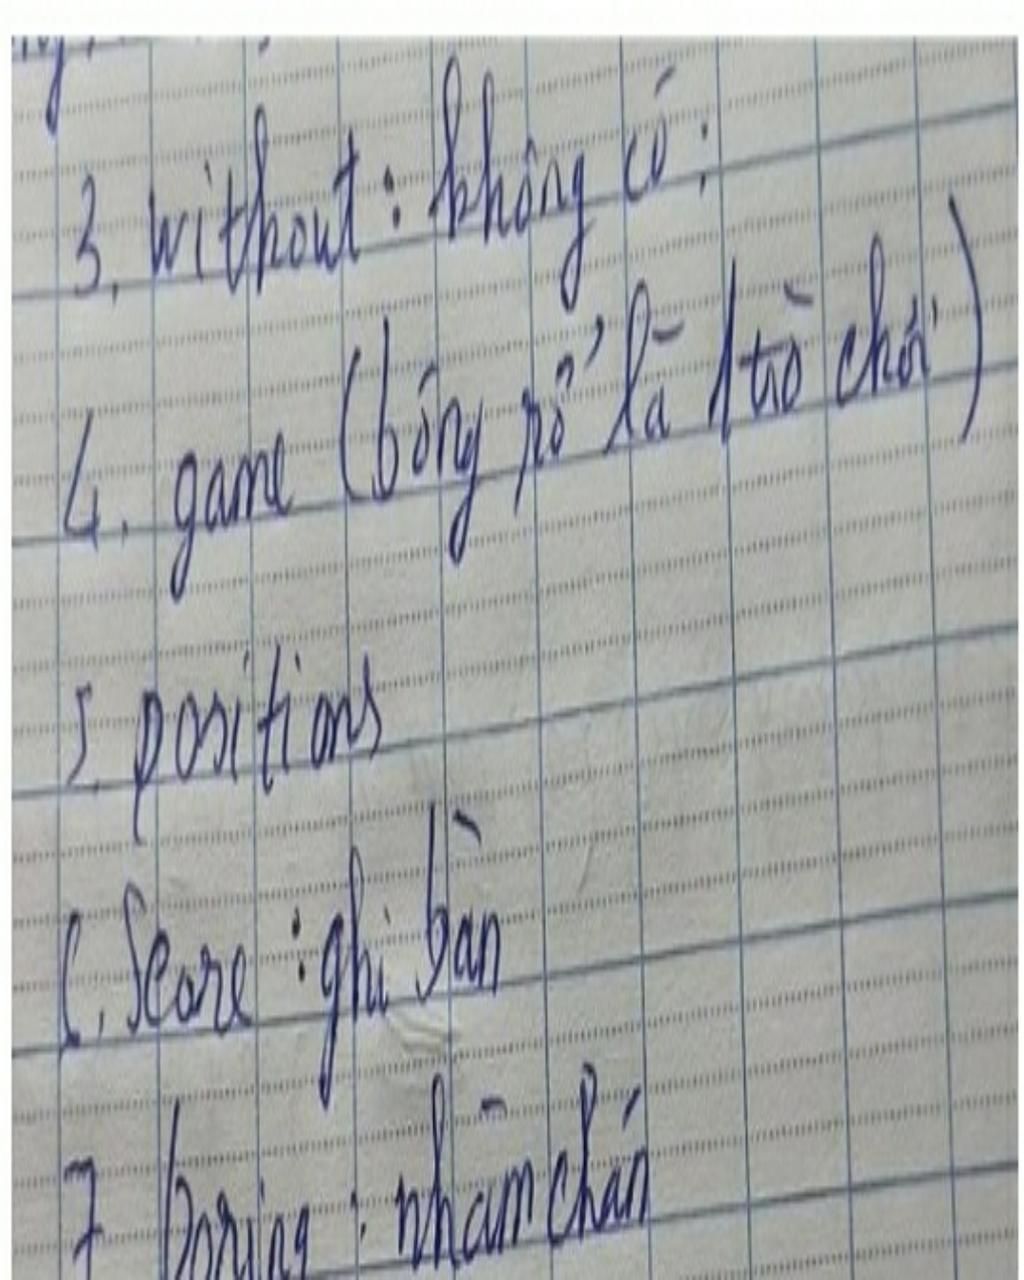 3. without : không có.
4. game (bóng rổ là 1 trò chơi)
5. positions
6. Score : ghi bàn
7. boring : nhàm chán